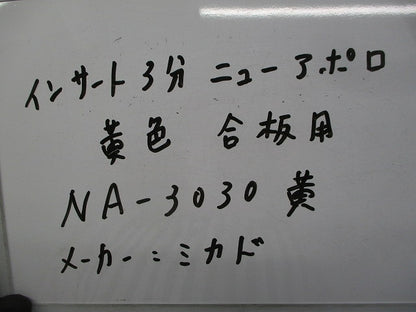 インサート3分 ニューアポロ
黄色 合板用
NA-3030 黄
メーカー:ミカド